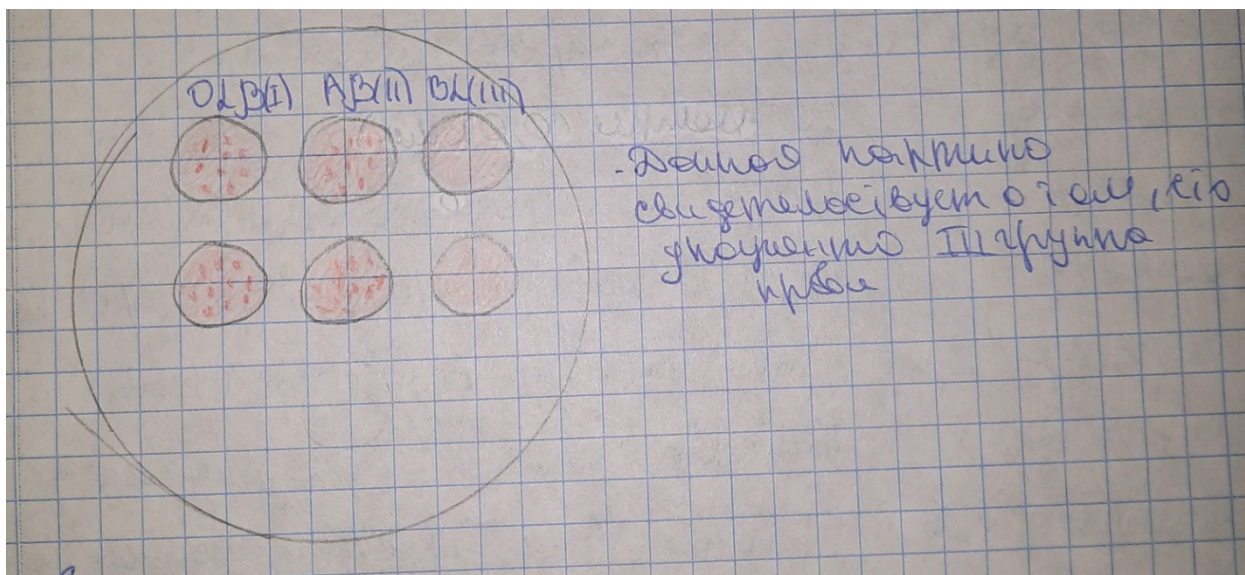 Oαβ(I) Aβ(II) Bα(III)
- Данная картина
свидетельствует о том, что
у пациента III группа
крови